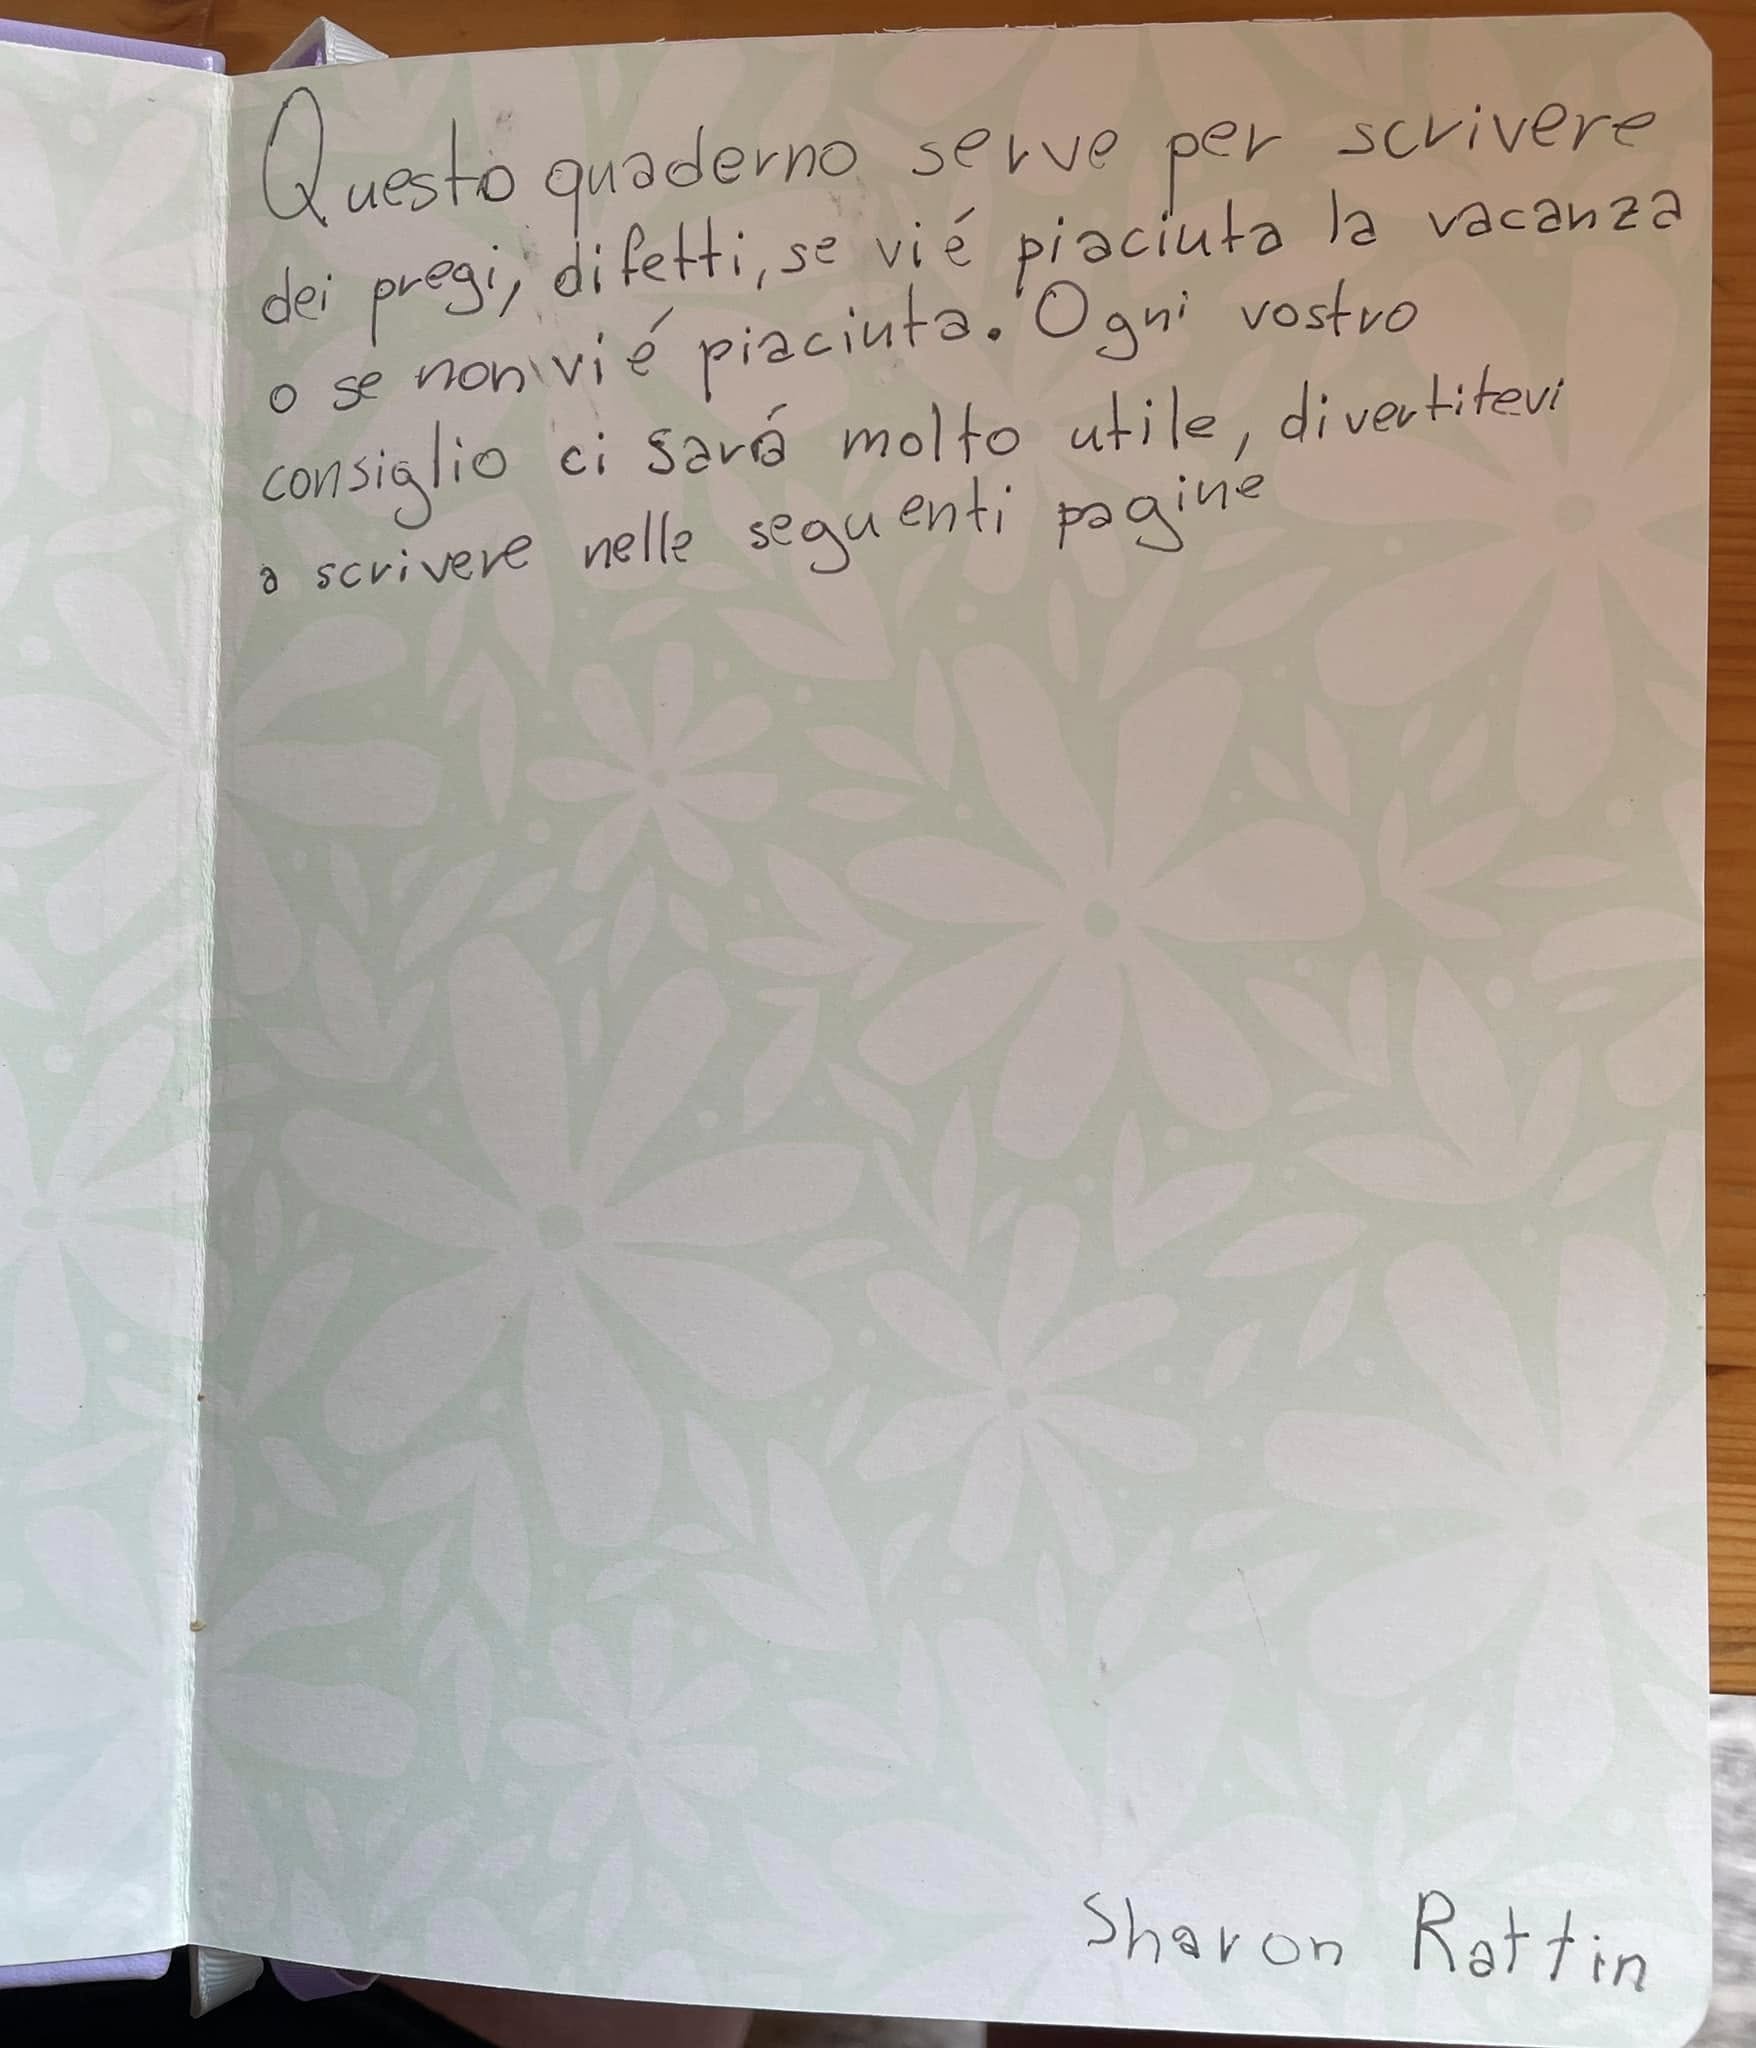 Questo quaderno serve per scrivere
dei pregi, difetti, se vi é piaciuta la vacanza
o se non vi é piaciuta. Ogni vostro
consiglio ci sará molto utile, divertitevi
a scrivere nelle seguenti pagine
Sharon Rattin